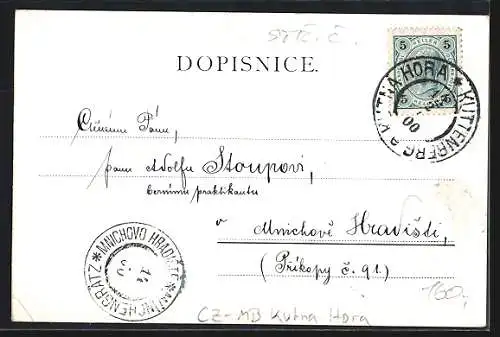 DOPISNICE.
5 HELLER 5
KUTNÁ HORA * KUTTENBERG
00
Ctěnému Pánu,
panu Adolfu Stoupovi,
bernímu praktikantu
v
Mnichově Hradišti,
(Příkopy č. 91.)
* MNICHOVO HRADIŠTĚ * MÜNCHENGRÄTZ
14
00
160,-
CZ-MB Kutna Hora